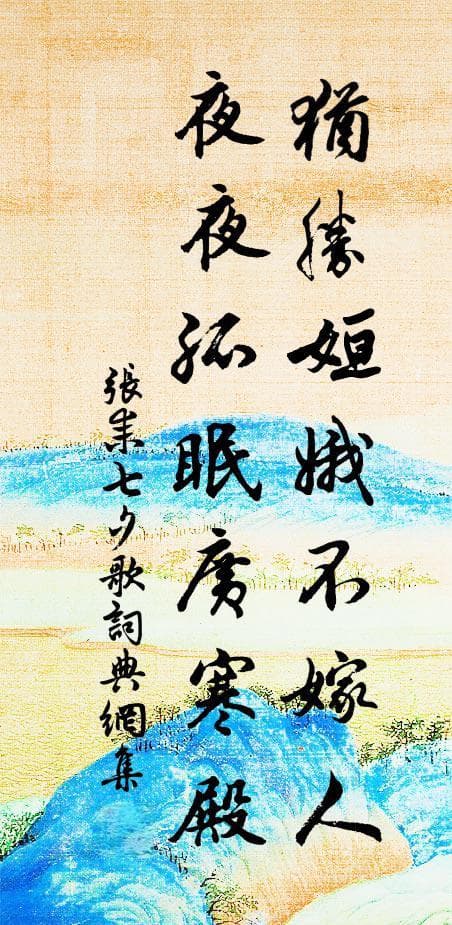 猶勝姮娥不嫁人
夜夜孤眠廣寒殿
張耒七夕歌詞典網集